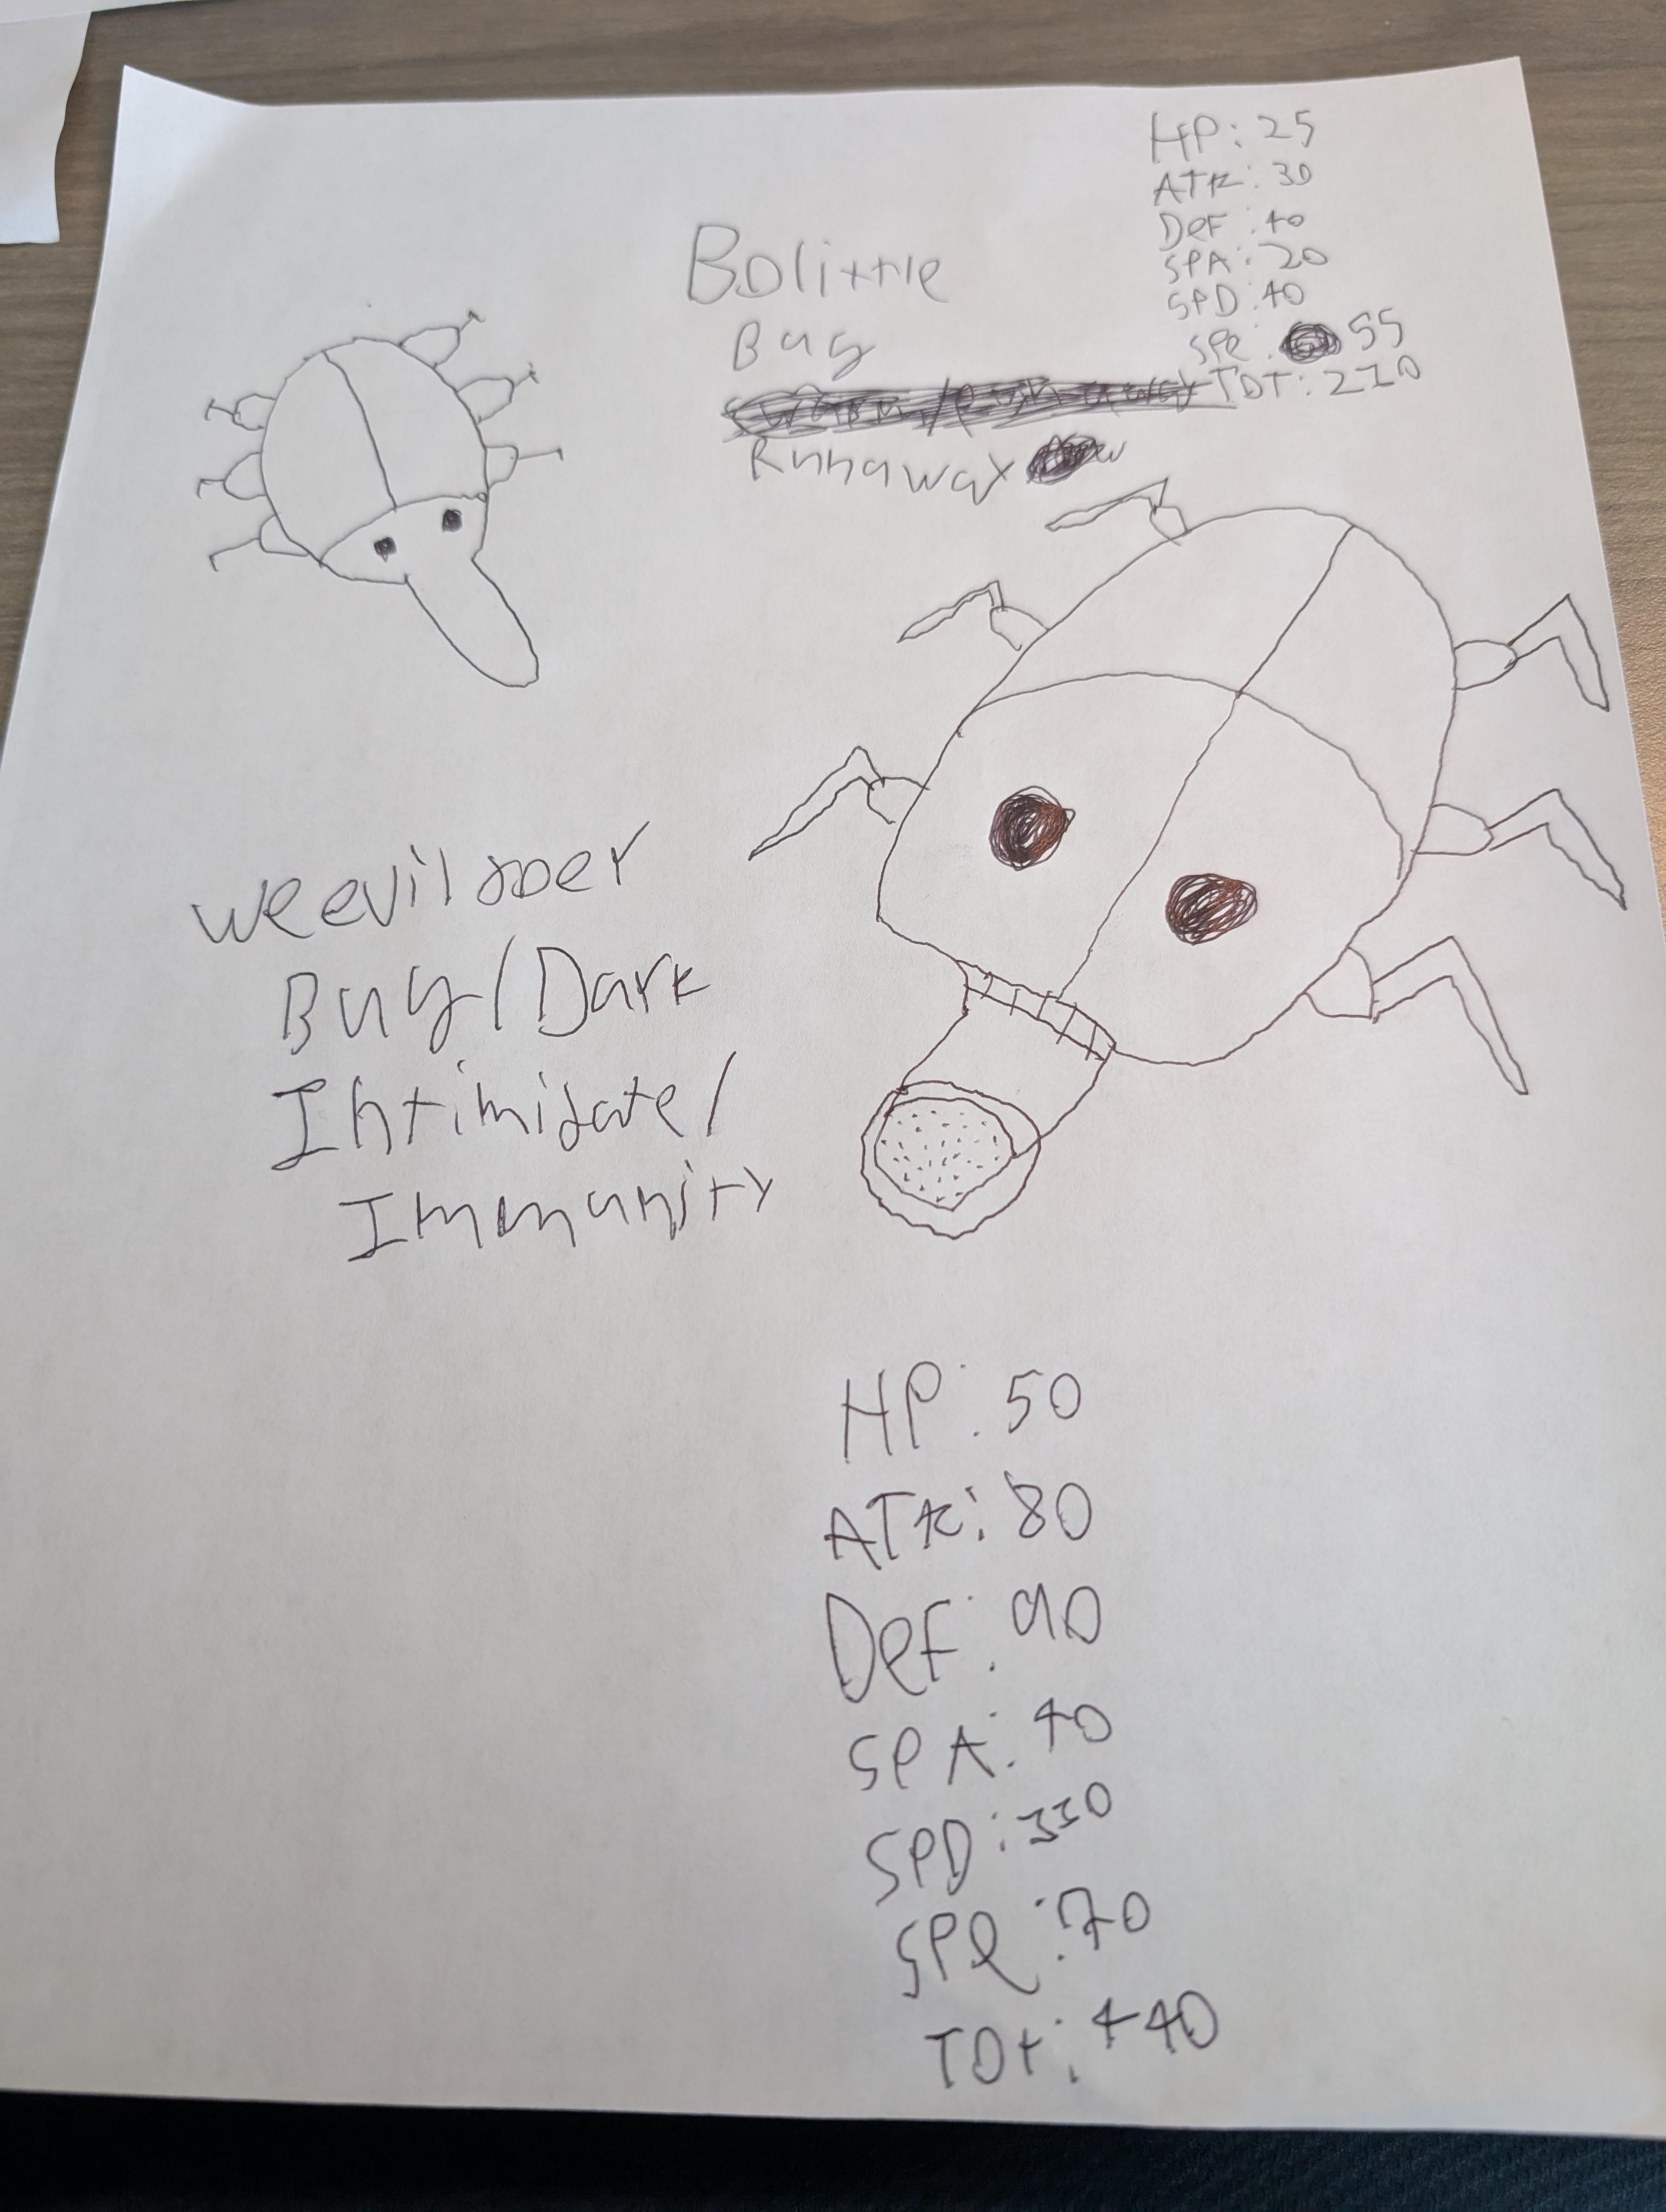 HP: 25
ATK: 30
DeF: 40
SPA: 20
SPD: 40
SPe: 55
TOT: 210
Bolittle
Bug
Runaway
weevildoer
Bug/Dark
Intimidate/
Immunity
HP: 50
ATK: 80
DeF: 90
SPA: 40
SPD: 110
SPe: 70
TOt: 440